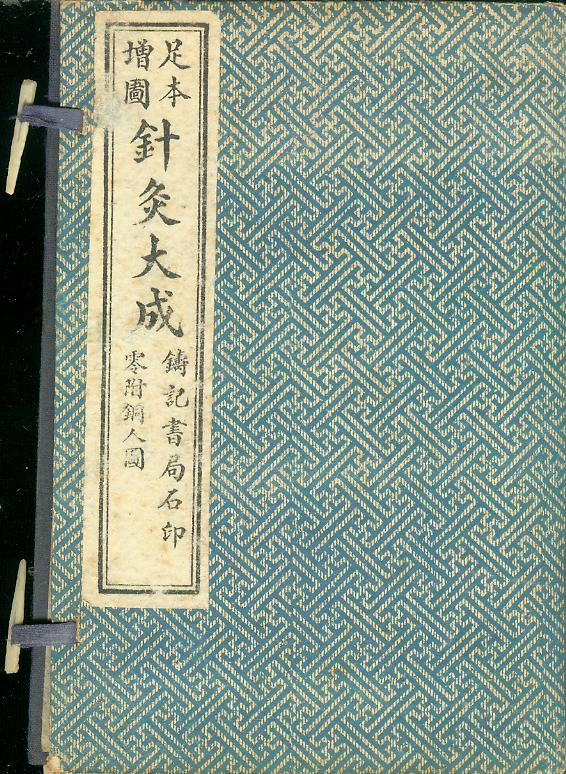 足本
增圖
針灸大成
鑄記書局石印
零附銅人圖